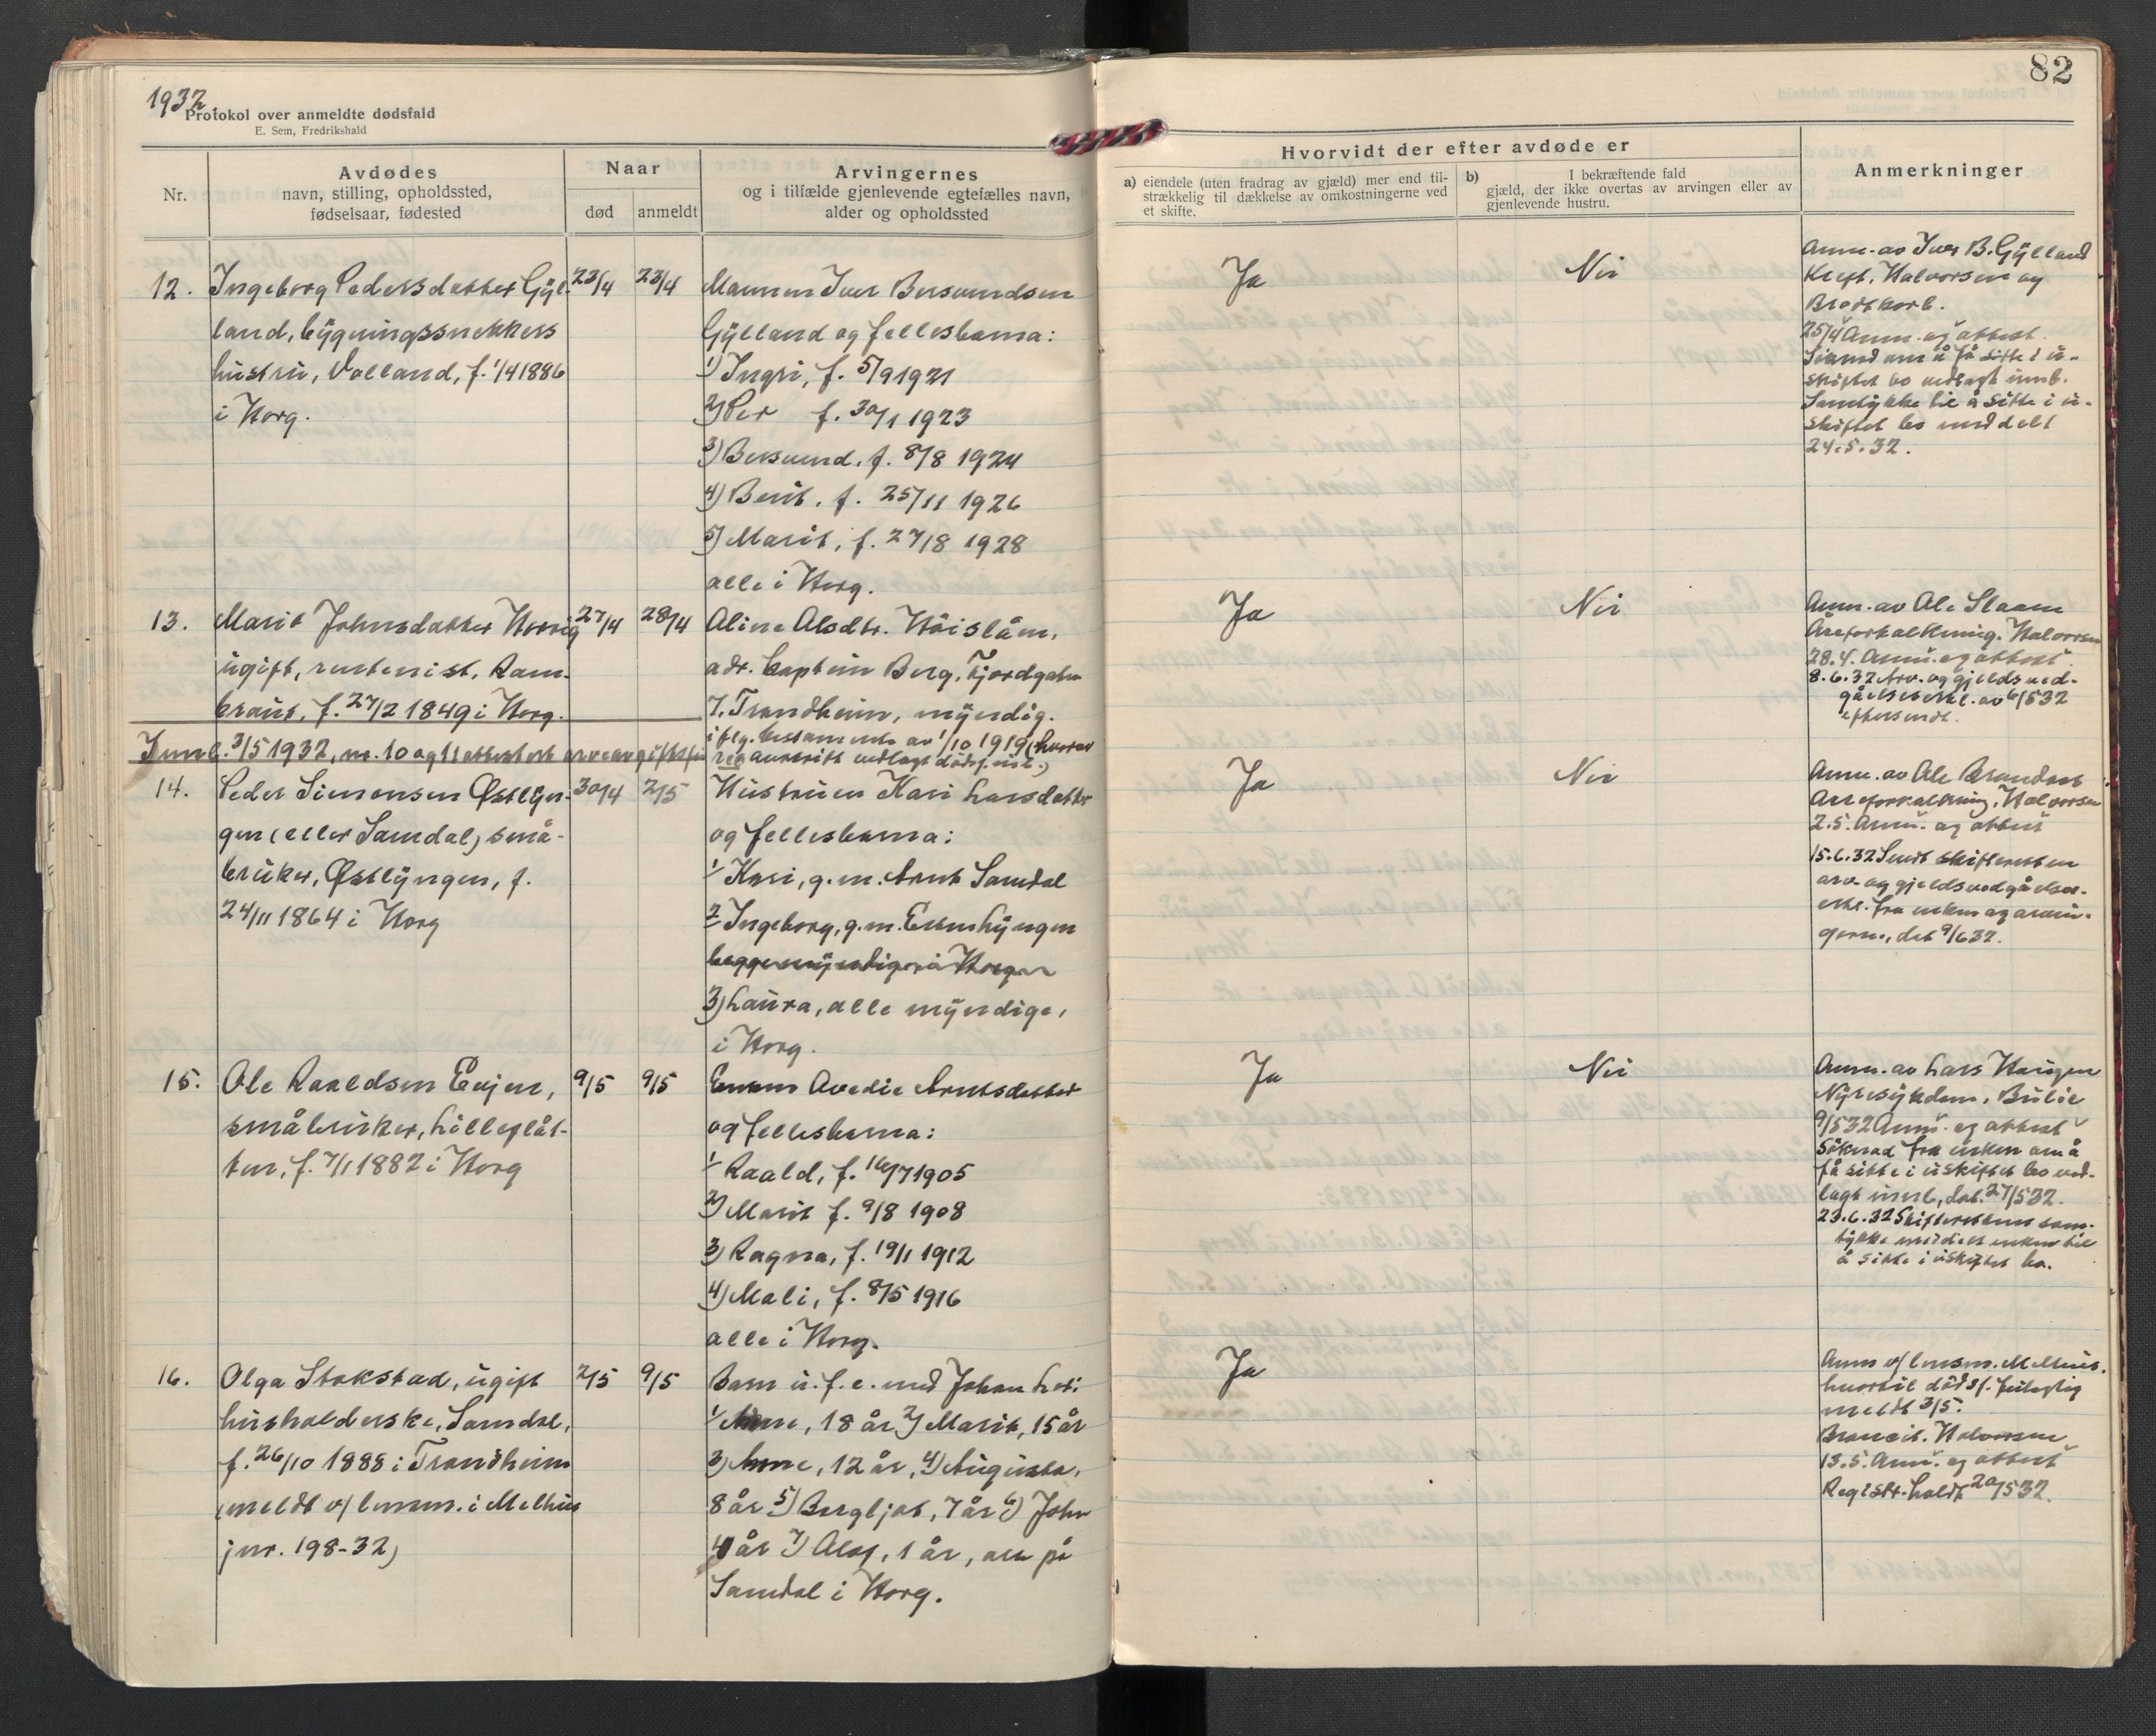 82
1932.
Protokol over anmeldte dødsfald
E. Sem, Fredrikshald
Nr.
Avdødes
navn, stilling, opholdssted,
fødselsaar, fødested
Naar
død
anmeldt
Arvingernes
og i tilfælde gjenlevende egtefælles navn,
alder og opholdssted
Hvorvidt der efter avdøde er
a) eiendele (uten fradrag av gjæld) mer end til-
strækkelig til dækkelse av omkostningerne ved
et skifte.
b) I bekræftende fald
gjæld, der ikke overtas av arvingen eller av
gjenlevende hustru.
Anmerkninger
12.
Ingeborg Pedersdatter Gyl-
land, bygningssnekkers
hustru, Volland, f. 1/4 1886
i Horg.
23/4
23/4
Mannen Iver Bersvendsen
Gylland og fellesbarna:
1) Ingri, f. 5/9 1921
2) Per f. 30/1 1923
3) Bersvend. f. 8/8 1924
4) Berit. f. 25/11 1926
5) Marit, f. 27/8 1928
alle i Horg.
Ja
Nei
Anm. av Iver B. Gylland
Kreft. Halvorsen og
Brodtkorb.
25/4 Anm. og attest
om å få sitte i u-
skiftet bo vedlagt innb.
Samtykke til å sitte i u-
skiftet bo meddelt
24.5.32.
13.
Marit Johnsdatter Horrig
ugift, rentenist, Ram-
braut, f. 27/2 1849 i Horg.
27/4
28/4
Aline Alsdtr. Höislåm,
adr. Captein Berg, Fjordgaten
7, Trondheim, myndig.
iflg. testamente av 1/10 1919 (hvorav
avskrift vedlagt dödsfmd.)
Ja
Nei
Anm. av Ole Slaam
Åreforkalkning. Halvorsen
28.4. Anm. og attest
8.6.32 Arv. og gjeldsved-
gåelseserkl. av 6/5 32
eftersendt.
Innb. 3/5 1932, nr. 10 og 11 attestert arveavgiftsfri
14.
Peder Simonsen Østlyn-
gen (eller Samdal) små-
bruker, Østlyngen, f.
24/11 1864 i Horg
30/4
2/5
Hustruen Kari Larsdatter
og fellesbarna:
1/ Kari, g.m. Arnt Samdal
2/ Ingeborg, g.m. Even Lyngen
begge myndige i Horg
3) Laura, alle myndige,
i Horg.
Ja
Nei
Anm. av Ole
Åreforkalkning, Halvorsen
2.5. Anm. og attest
15.6.32 Sendt skifteretten
arv- og gjeldsvedgåelses-
erkl. fra enken og arvin-
gerne, dat 9/6 32.
15.
Ole Raaldsen Evjen,
småbruker, Lilleslåt-
ten, f. 7/1 1882 i Horg
9/5
9/5
Enken Avedie Arntsdatter
og fellesbarna:
1/ Raald, f. 16/7 1905
2) Marit f. 9/8 1908
3) Ragna, f. 19/1 1912
4) Mali, f. 8/5 1916
alle i Horg.
Ja
Nei
Anm. av Lars Haugen
Nyresykdom,
9/5 32 Anm. og attest
Söknad fra enken om å
få sitte i uskiftet bo ved-
lagt innb, dat. 27/5 32.
23.6.32 Skifterettens sam-
tykke meddelt enken til
å sitte i uskiftet bo.
16.
Olga Stokstad, ugift
husholderske, Samdal,
f. 26/10 1888 i Trondheim
(meldt v/ lensm. i Melhus
jnr. 198-32)
2/5
9/5
Barn u.f.e. med Johan
1/ 18 år 2) Marit, 15 år
3) Arne, 12 år, 4) Augusta,
8 år 5) Bergljot, 7 år 6) John
4 år 7) Alof, 1 år, alle på
Samdal i Horg.
Ja
Anm v/ lensm. Melhus.
hvortil dödsf. feilagtig
meldt 3/5.
Halvorsen
13.5. Anm. og attest
Registr. holdt 20/5 32.